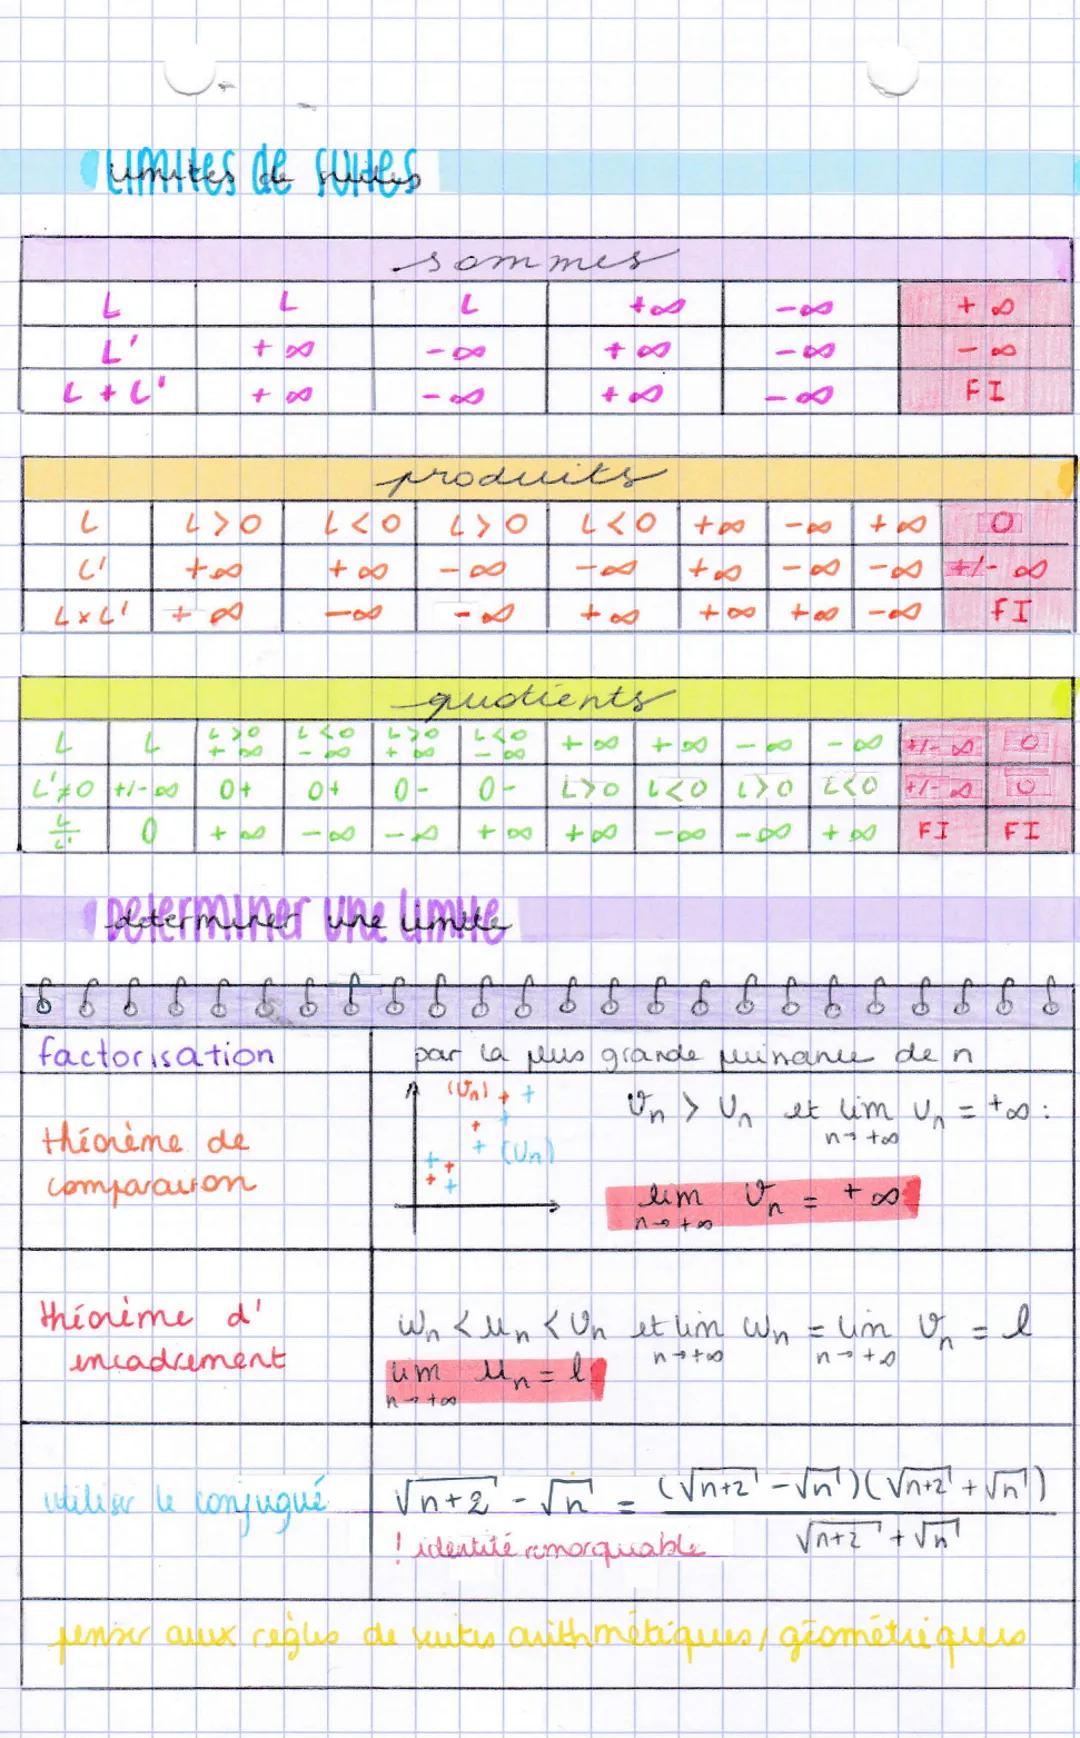 limites de suites
sommes
L L L +∞ -∞ +∞
L' +∞ -∞ +∞ -∞ -∞
L + L' +∞ -∞ +∞ -∞ FI
produits
L L>0 L<0 L>0 L<0 +∞ -∞ +∞ 0
L' +∞ +∞ -∞ -∞ +∞ -∞ -∞ +/-∞
L×L' +∞ -∞ -∞ +∞ +∞ +∞ -∞ FI
quotients
L L L>0 +∞ L<0 -∞ L>0 +∞ L<0 -∞ +∞ +∞ -∞ -∞ +/-∞ 0
L'≠0 +/-∞ 0+ 0+ 0- 0- L>0 L<0 L>0 L<0 +/-∞ 0
L/L' 0 +∞ -∞ -∞ +∞ +∞ -∞ -∞ +∞ FI FI
determiner une limite
factorisation par la plus grande puissance de n
théorème de comparaison
(Vn)
(Un)
Vn > Un et lim Un = +∞ :
n→+∞
lim Vn = +∞
n→+∞
théorème d'
encadrement
Wn < Un < Vn et lim Wn = lim Vn = l
n→+∞ n→+∞
lim Un = l
n→+∞
utiliser le conjugué
√n+2 - √n = (√n+2 - √n)(√n+2 + √n)
√n+2 + √n
! identité remarquable
penser aux règles de suites arithmétiques, géométriques